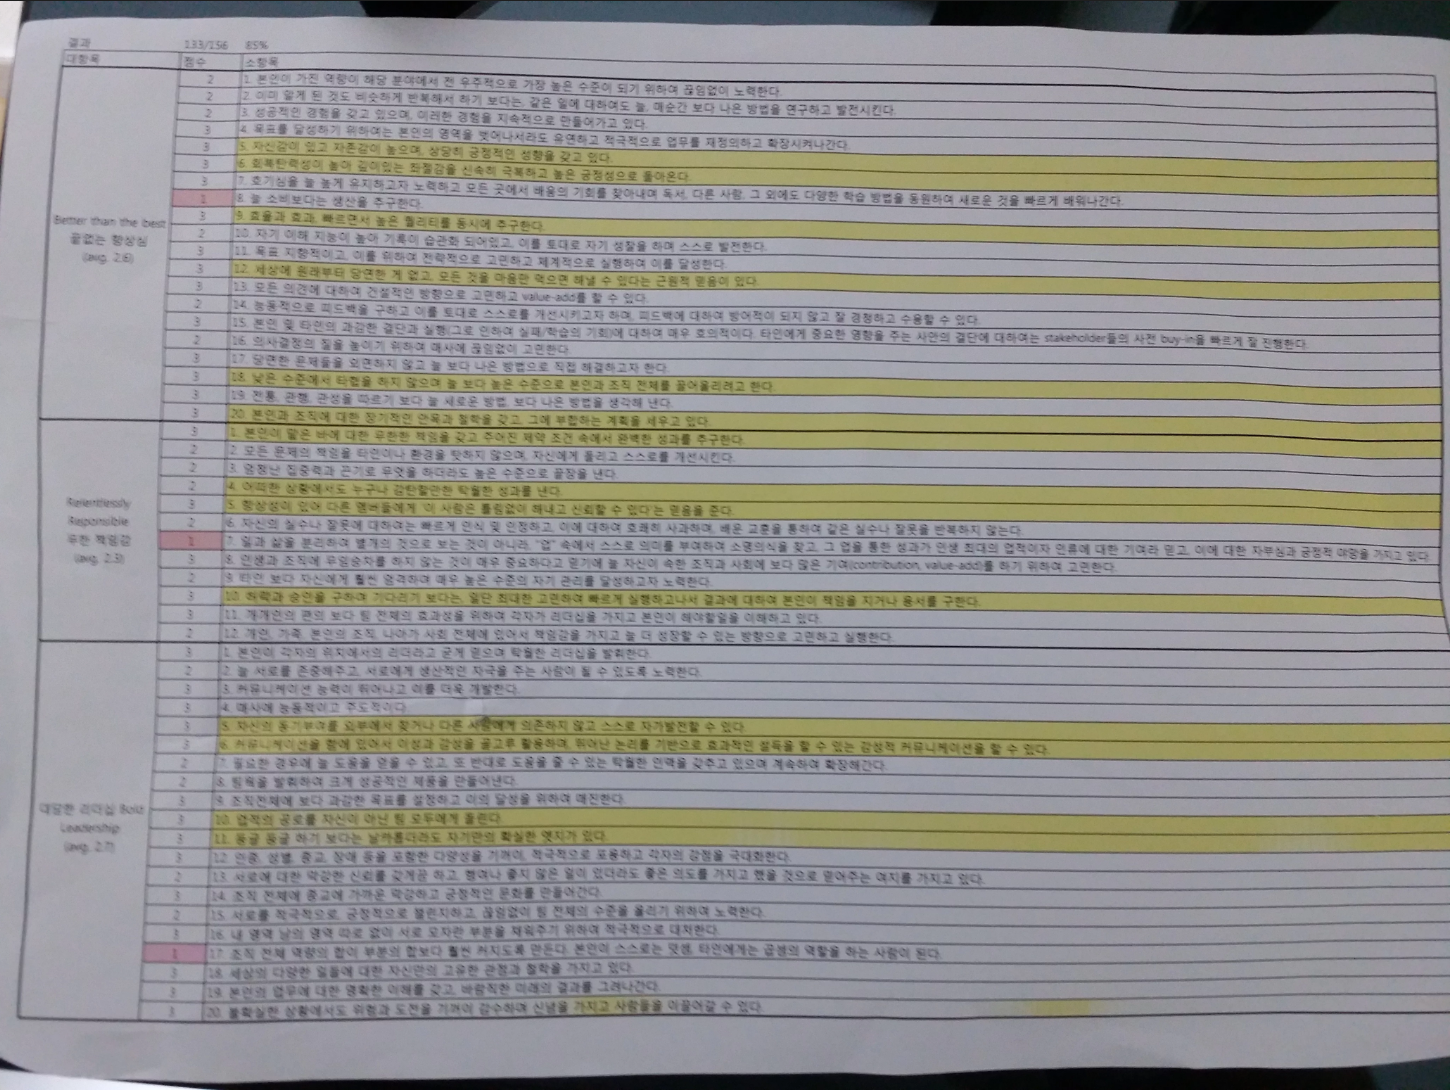 결과 133/156 85%
대항목 점수 소항목
Better than the best
끝없는 향상심
(avg. 2.6)
2 1. 본인이 가진 역량이 해당 분야에서 전 우주적으로 가장 높은 수준이 되기 위하여 끊임없이 노력한다.
2 2. 이미 알게 된 것도 비슷하게 반복해서 하기 보다는, 같은 일에 대하여도 늘, 매순간 보다 나은 방법을 연구하고 발전시킨다
2 3. 성공적인 경험을 갖고 있으며, 이러한 경험을 지속적으로 만들어가고 있다.
3 4. 목표를 달성하기 위하여는 본인의 영역을 벗어나서라도 유연하고 적극적으로 업무를 재정의하고 확장시켜나간다.
3 5. 자신감이 있고 자존감이 높으며, 상당히 긍정적인 성향을 갖고 있다.
3 6. 회복탄력성이 높아 깊이있는 좌절감을 신속히 극복하고 높은 긍정성으로 돌아온다.
3 7. 호기심을 늘 높게 유지하고자 노력하고 모든 곳에서 배움의 기회를 찾아내며 독서, 다른 사람, 그 외에도 다양한 학습 방법을 동원하여 새로운 것을 빠르게 배워나간다.
1 8. 늘 소비보다는 생산을 추구한다.
3 9. 효율과 효과, 빠르면서 높은 퀄리티를 동시에 추구한다.
2 10. 자기 이해 지능이 높아 기록이 습관화 되어있고, 이를 토대로 자기 성찰을 하며 스스로 발전한다.
3 11. 목표 지향적이고, 이를 위하여 전략적으로 고민하고 체계적으로 실행하여 이를 달성한다.
3 12. 세상에 원래부터 당연한 게 없고, 모든 것을 마음만 먹으면 해낼 수 있다는 근원적 믿음이 있다.
3 13. 모든 의견에 대하여 건설적인 방향으로 고민하고 value-add를 할 수 있다.
2 14. 능동적으로 피드백을 구하고 이를 토대로 스스로를 개선시키고자 하며, 피드백에 대하여 방어적이 되지 않고 잘 경청하고 수용할 수 있다.
3 15. 본인 및 타인의 과감한 결단과 실행(그로 인하여 실패/학습의 기회)에 대하여 매우 호의적이다. 타인에게 중요한 영향을 주는 사안의 결단에 대하여는 stakeholder들의 사전 buy-in을 빠르게 잘 진행한다.
2 16. 의사결정의 질을 높이기 위하여 매사에 끊임없이 고민한다.
3 17. 당면한 문제들을 외면하지 않고 늘 보다 나은 방법으로 직접 해결하고자 한다.
3 18. 낮은 수준에서 타협을 하지 않으며 늘 보다 높은 수준으로 본인과 조직 전체를 끌어올리려고 한다.
3 19. 전통, 관행, 관성을 따르기 보다 늘 새로운 방법, 보다 나은 방법을 생각해 낸다.
3 20. 본인과 조직에 대한 장기적인 안목과 철학을 갖고, 그에 부합하는 계획을 세우고 있다.
Relentlessly
Responsible
무한 책임감
(avg. 2.5)
3 1. 본인이 맡은 바에 대한 무한한 책임을 갖고 주어진 제약 조건 속에서 완벽한 성과를 추구한다.
2 2. 모든 문제의 책임을 타인이나 환경을 탓하지 않으며, 자신에게 돌리고 스스로를 개선시킨다.
2 3. 엄청난 집중력과 끈기로 무엇을 하더라도 높은 수준으로 끝장을 낸다.
2 4. 어떠한 상황에서도 누구나 감탄할만한 탁월한 성과를 낸다.
3 5. 항상성이 있어 다른 멤버들에게 '이 사람은 틀림없이 해내고 신뢰할 수 있다'는 믿음을 준다.
2 6. 자신의 실수나 잘못에 대하여는 빠르게 인식 및 인정하고, 이에 대하여 호쾌히 사과하며, 배운 교훈을 통하여 같은 실수나 잘못을 반복하지 않는다.
1 7. 일과 삶을 분리하여 별개의 것으로 보는 것이 아니라, "업" 속에서 스스로 의미를 부여하여 소명의식을 찾고, 그 업을 통한 성과가 인생 최대의 업적이자 인류에 대한 기여라 믿고, 이에 대한 자부심과 긍정적 야망을 가지고 있다.
3 8. 인생과 조직에 무임승차를 하지 않는 것이 매우 중요하다고 믿기에 늘 자신이 속한 조직과 사회에 보다 많은 기여(contribution, value-add)를 하기 위하여 고민한다.
2 9. 타인 보다 자신에게 훨씬 엄격하여 매우 높은 수준의 자기 관리를 달성하고자 노력한다.
3 10. 허락과 승인을 구하여 기다리기 보다는, 일단 최대한 고민하여 빠르게 실행하고나서 결과에 대하여 본인이 책임을 지거나 용서를 구한다.
3 11. 개개인의 편의 보다 팀 전체의 효과성을 위하여 각자가 리더십을 가지고 본인이 해야할일을 이해하고 있다.
2 12. 개인, 가족, 본인의 조직, 나아가 사회 전체에 있어서 책임감을 가지고 늘 더 성장할 수 있는 방향으로 고민하고 실행한다.
대담한 리더십 Bold
Leadership
(avg. 2.7)
3 1. 본인이 각자의 위치에서의 리더라고 굳게 믿으며 탁월한 리더십을 발휘한다.
2 2. 늘 서로를 존중해주고, 서로에게 생산적인 자극을 주는 사람이 될 수 있도록 노력한다.
3 3. 커뮤니케이션 능력이 뛰어나고 이를 더욱 개발한다.
3 4. 매사에 능동적이고 주도적이다.
3 5. 자신의 동기부여를 외부에서 찾거나 다른 사람에게 의존하지 않고 스스로 자가발전할 수 있다.
3 6. 커뮤니케이션을 함에 있어서 이성과 감성을 골고루 활용하며, 뛰어난 논리를 기반으로 효과적인 설득을 할 수 있는 감성적 커뮤니케이션을 할 수 있다.
2 7. 필요한 경우에 늘 도움을 얻을 수 있고, 또 반대로 도움을 줄 수 있는 탁월한 인맥을 갖추고 있으며 계속하여 확장해간다.
2 8. 팀웍을 발휘하여 크게 성공적인 제품을 만들어낸다.
3 9. 조직전체에 보다 과감한 목표를 설정하고 이의 달성을 위하여 매진한다.
3 10. 업적의 공로를 자신이 아닌 팀 모두에게 돌린다.
3 11. 둥글 둥글 하기 보다는 날카롭더라도 자기만의 확실한 엣지가 있다.
3 12. 인종, 성별, 종교, 장애 등을 포함한 다양성을 기꺼이, 적극적으로 포용하고 각자의 강점을 극대화한다.
2 13. 서로에 대한 막강한 신뢰를 갖게끔 하고, 행여나 좋지 않은 일이 있더라도 좋은 의도를 가지고 했을 것으로 믿어주는 여지를 가지고 있다.
3 14. 조직 전체에 종교에 가까운 막강하고 긍정적인 문화를 만들어간다.
2 15. 서로를 적극적으로, 긍정적으로 챌린지하고, 끊임없이 팀 전체의 수준을 올리기 위하여 노력한다.
3 16. 내 영역 남의 영역 따로 없이 서로 모자란 부분을 채워주기 위하여 적극적으로 대처한다.
1 17. 조직 전체 역량의 합이 부분의 합보다 훨씬 커지도록 만든다. 본인이 스스로는 덧셈, 타인에게는 곱셈의 역할을 하는 사람이 된다.
3 18. 세상의 다양한 일들에 대한 자신만의 고유한 관점과 철학을 가지고 있다.
3 19. 본인의 업무에 대한 명확한 이해를 갖고, 바람직한 미래의 결과를 그려나간다.
3 20. 불확실한 상황에서도 위험과 도전을 기꺼이 감수하며 신념을 가지고 사람들을 이끌어갈 수 있다.